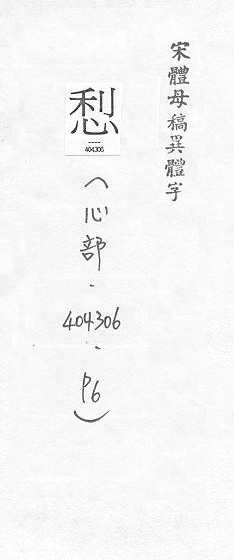 宋體母稿異體字
404306
(心部.404306.P6)